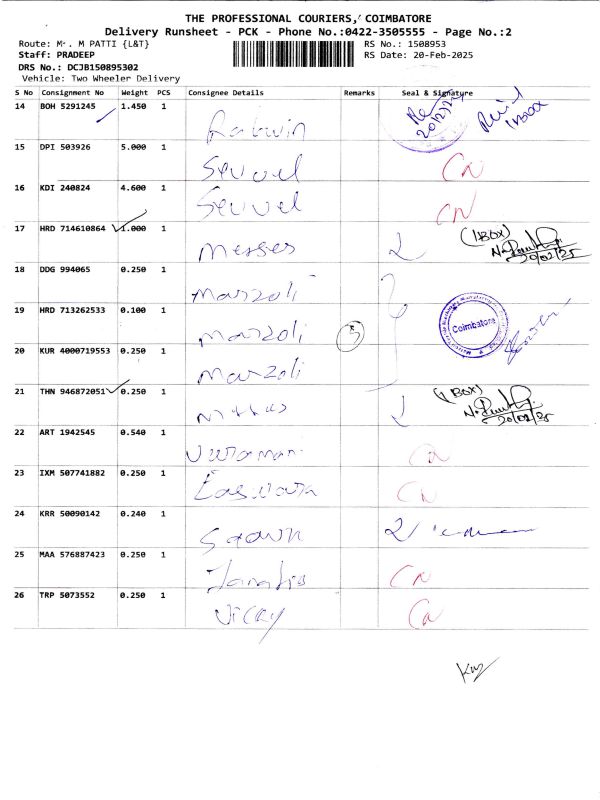 THE PROFESSIONAL COURIERS, COIMBATORE
Delivery Runsheet - PCK - Phone No.:0422-3505555 - Page No.:2
Route: M-. M PATTI {L&T} RS No.: 1508953
Staff: PRADEEP RS Date: 20-Feb-2025
DRS No.: DCJB150895302
Vehicle: Two Wheeler Delivery
S No Consignment No Weight PCS Consignee Details Remarks Seal & Signature
14 BOH 5291245 1.450 1
15 DPI 503926 5.000 1 CN
16 KDI 240824 4.600 1 CN
17 HRD 714610864 1.000 1 Messes (1 BOX) 20/02/25
18 DDG 994065 0.250 1 Marzoli
19 HRD 713262533 0.100 1 Marzoli 3 Coimbatore
20 KUR 4000719553 0.250 1 Marzoli
21 THN 946872051 0.250 1 (1 BOX) 20/02/25
22 ART 1942545 0.540 1
23 IXM 507741882 0.250 1 CN
24 KRR 50090142 0.240 1
25 MAA 576887423 0.250 1 CN
26 TRP 5073552 0.250 1 Vicky